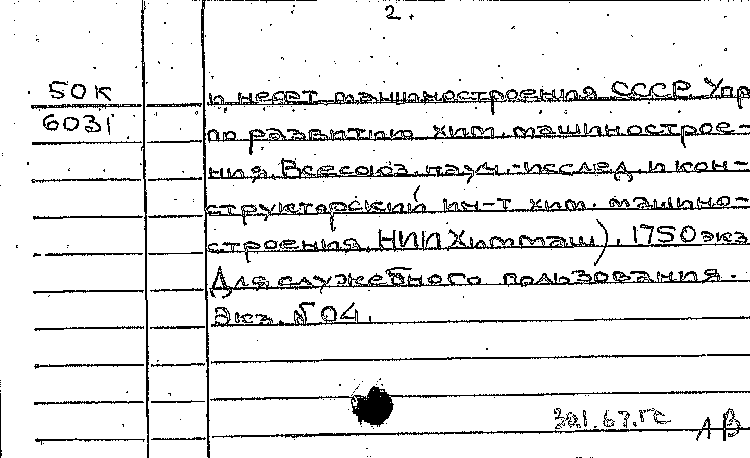 2.
50К
6031
и нефт. машиностроения СССР. Упр
по развитию хим. машинострое-
ния. Всесоюз. науч.-исслед. и кон-
структорский ин-т хим. машино-
строения. НИИХиммаш). 1750 экз
Для служебного пользования.
Экз. 504.